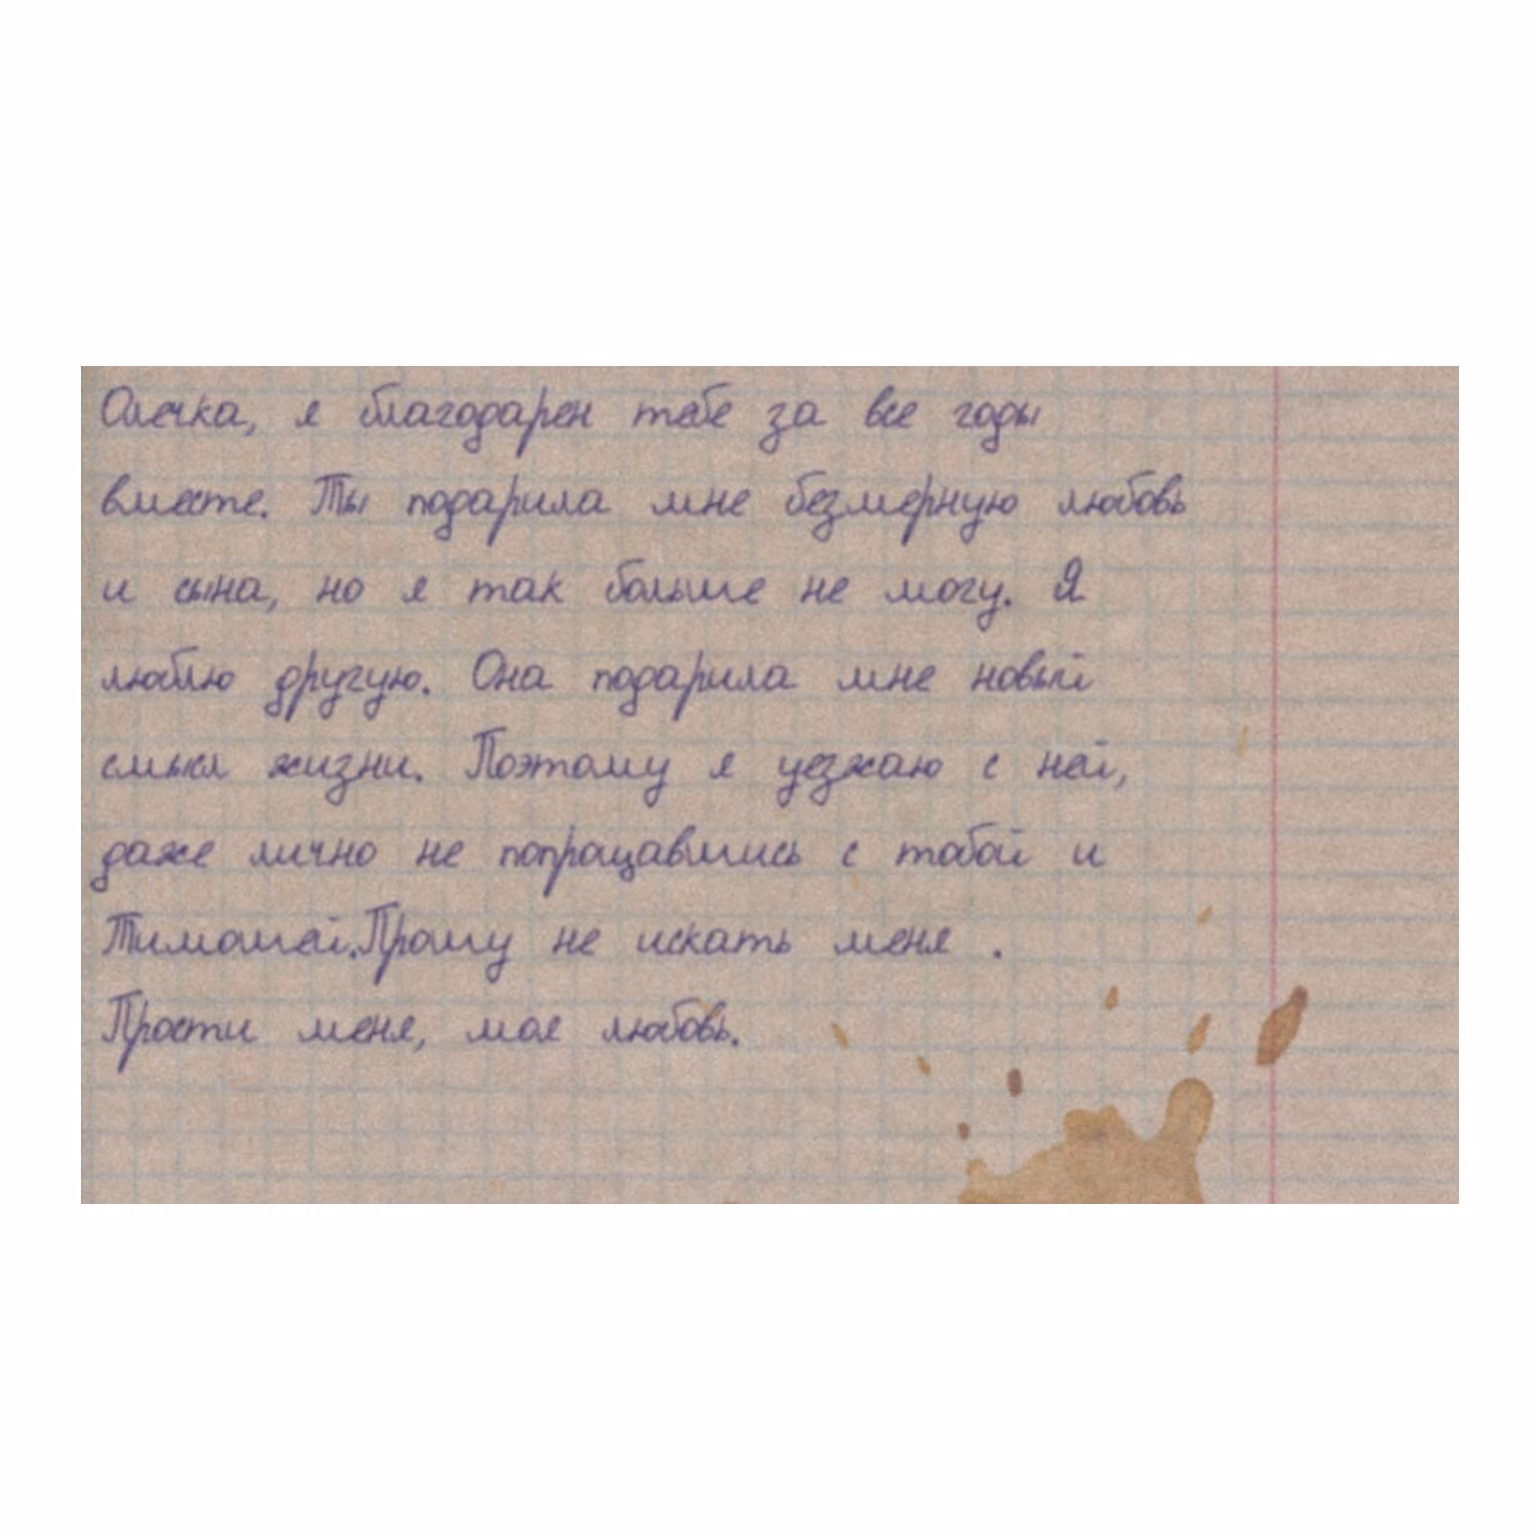 Олечка, я благодарен тебе за все годы
вместе. Ты подарила мне безмерную любовь
и сына, но я так больше не могу. Я
люблю другую. Она подарила мне новый
смысл жизни. Поэтому я уезжаю с ней,
даже лично не попрощавшись с тобой и
Тимошей.Прошу не искать меня .
Прости меня, моя любовь.